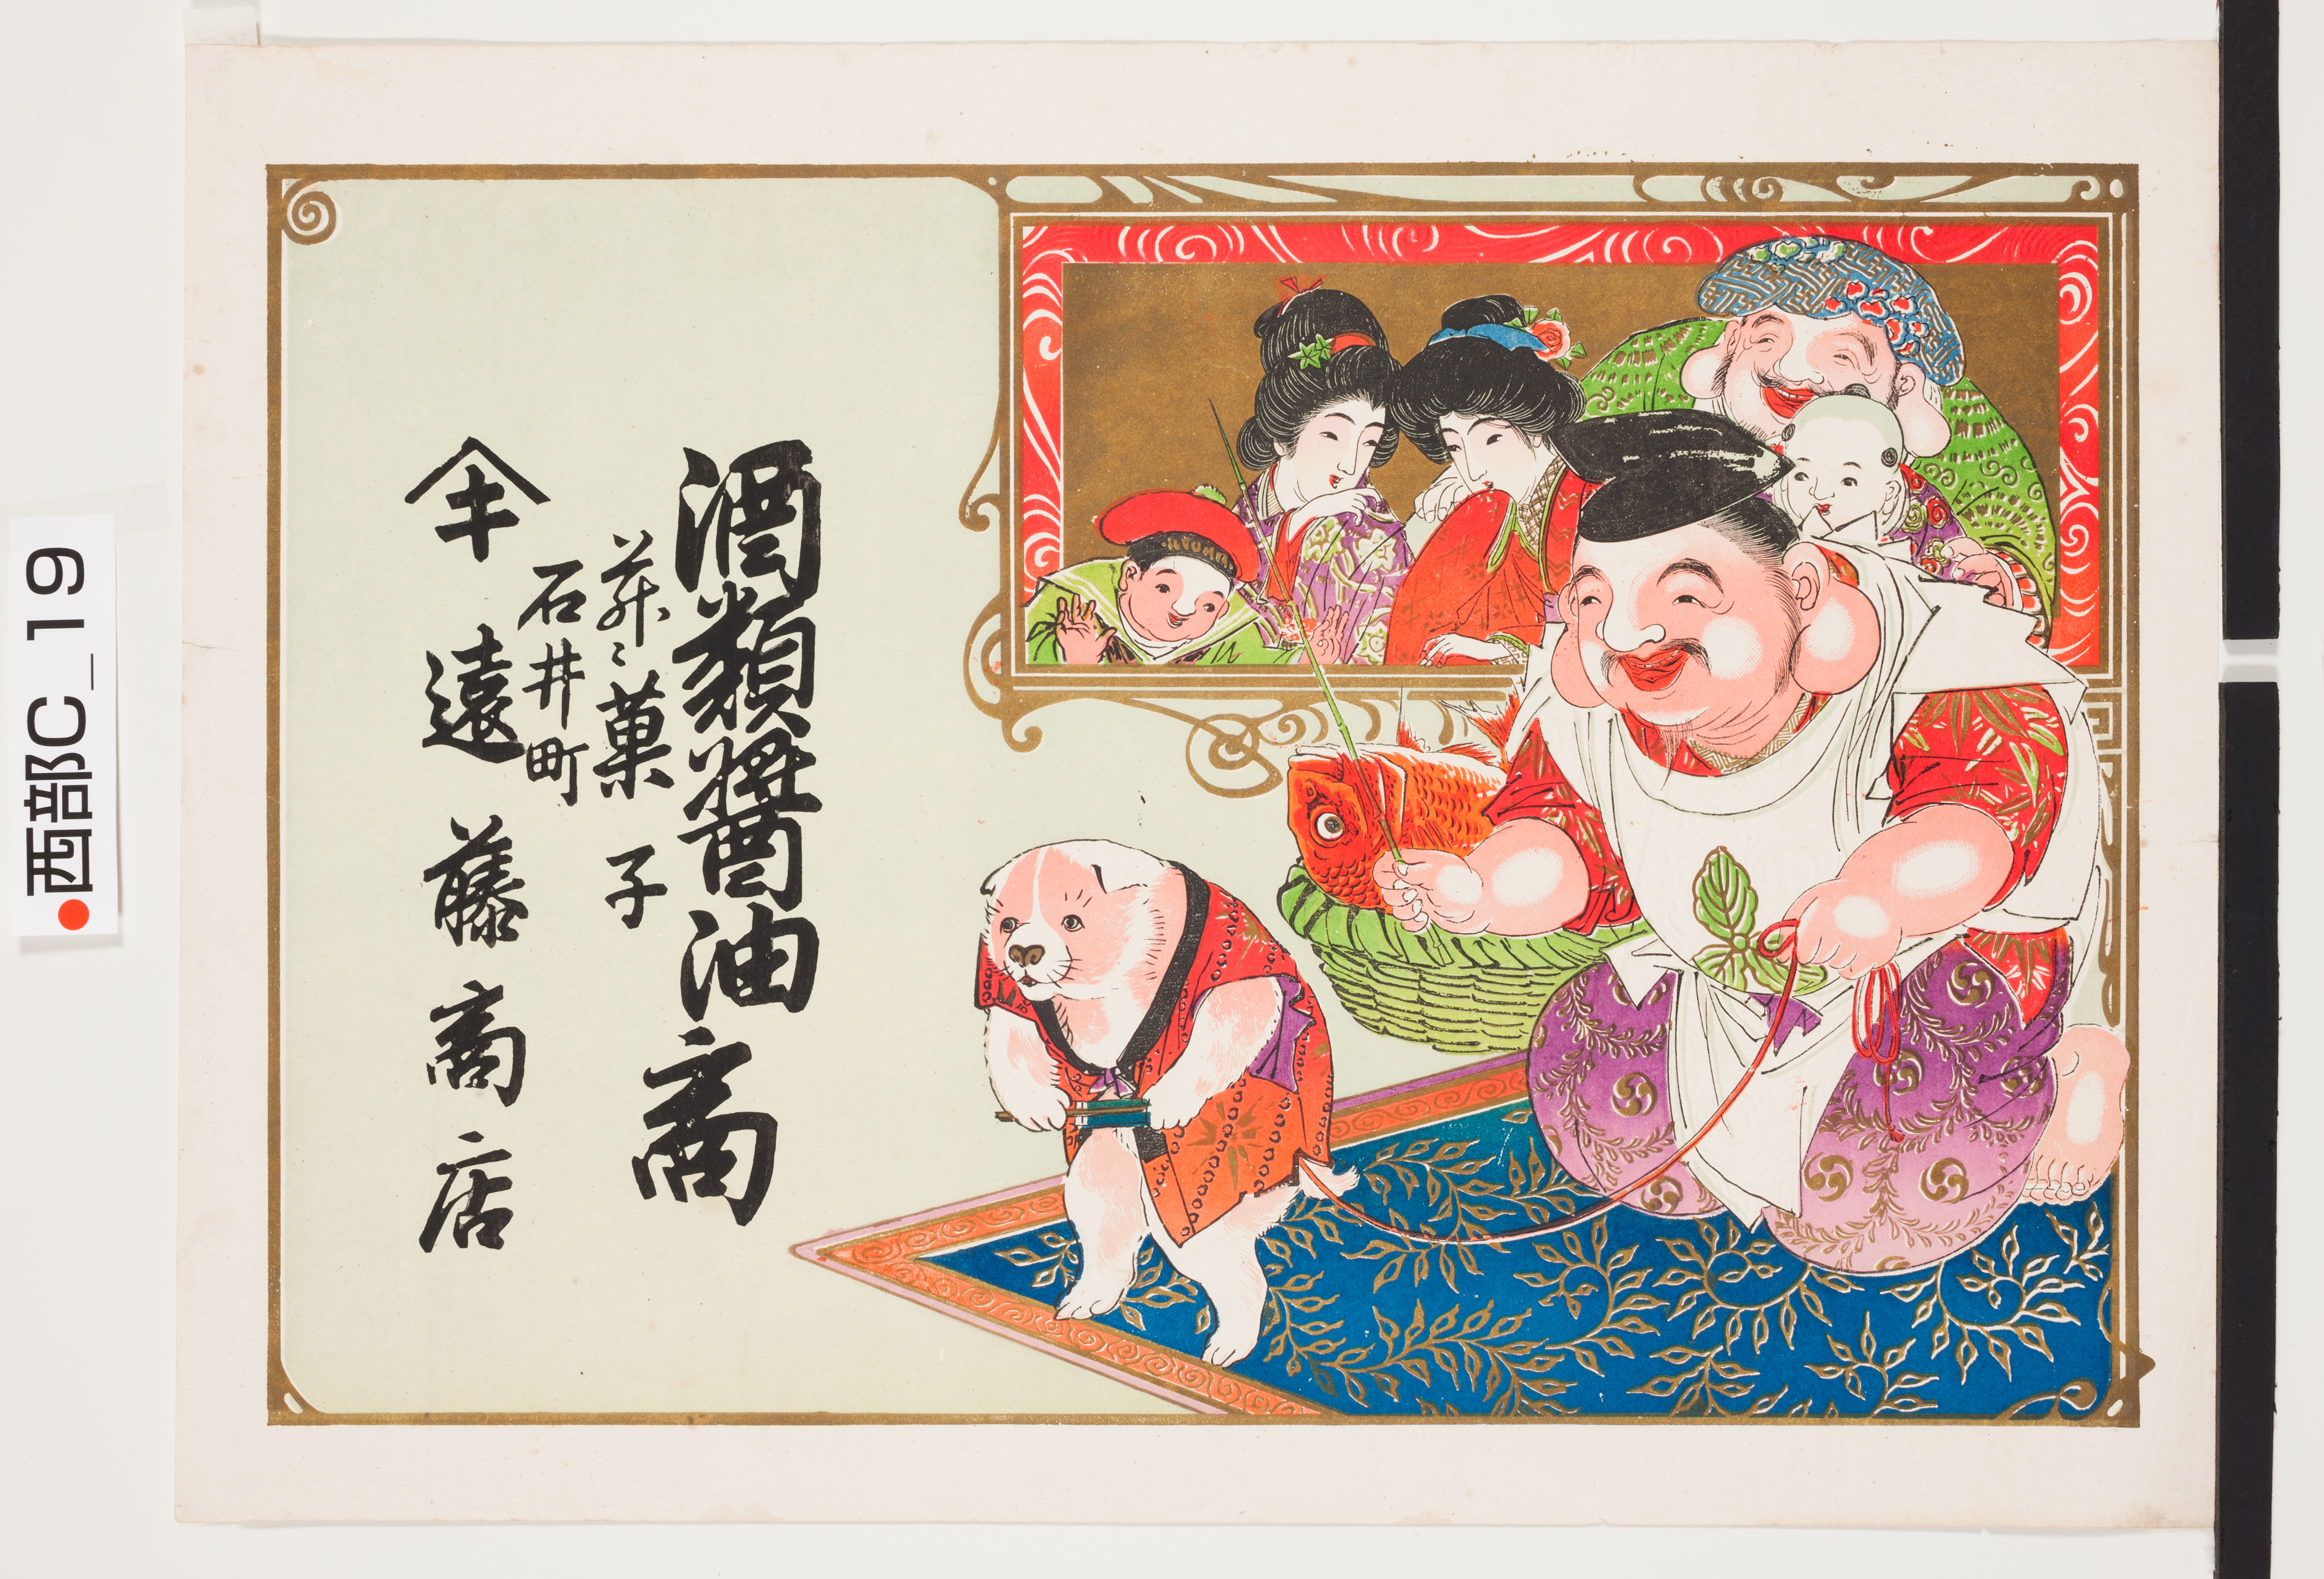 酒類醬油商
菓子
石井町
遠藤商店
西部C_19